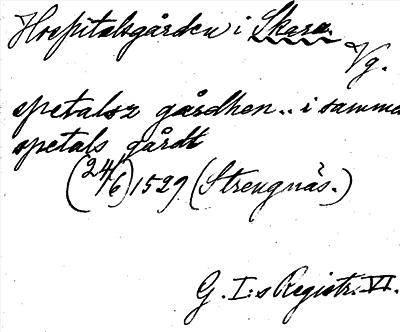 Hospitalsgården i Skara.
Vg.
spetalsz gårdhen.. i samma
spetals gårdt
(24/6) 1529 (Strengnäs.)
G. I:s Registr. VI.